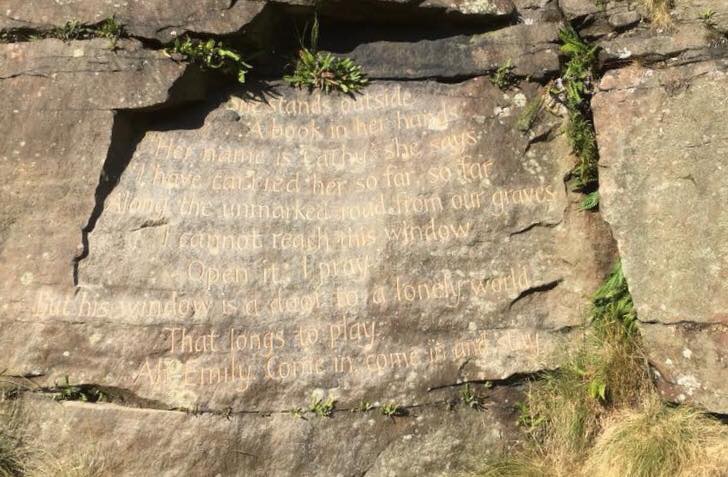 She stands outside
A book in her hands
"Her name is Cathy" she says
"I have carried her so far, so far
Along the unmarked road from our graves
I cannot reach this window
Open it, I pray."
But his window is a door to a lonely world
That longs to play.
Ah Emily. Come in, come in and stay.